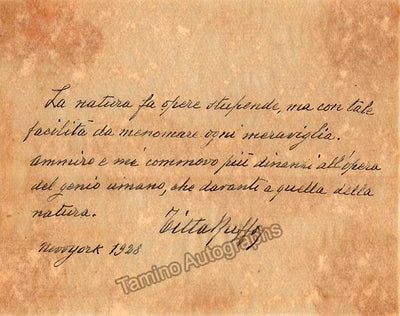 La natura fa opere stupende, ma con tale
facilità da menomare ogni meraviglia.
ammiro e mi commovo più dinanzi all'opera
del genio umano, che davanti a quella della
natura.
Titta Ruffo
Newyork 1928
Tamino Autographs